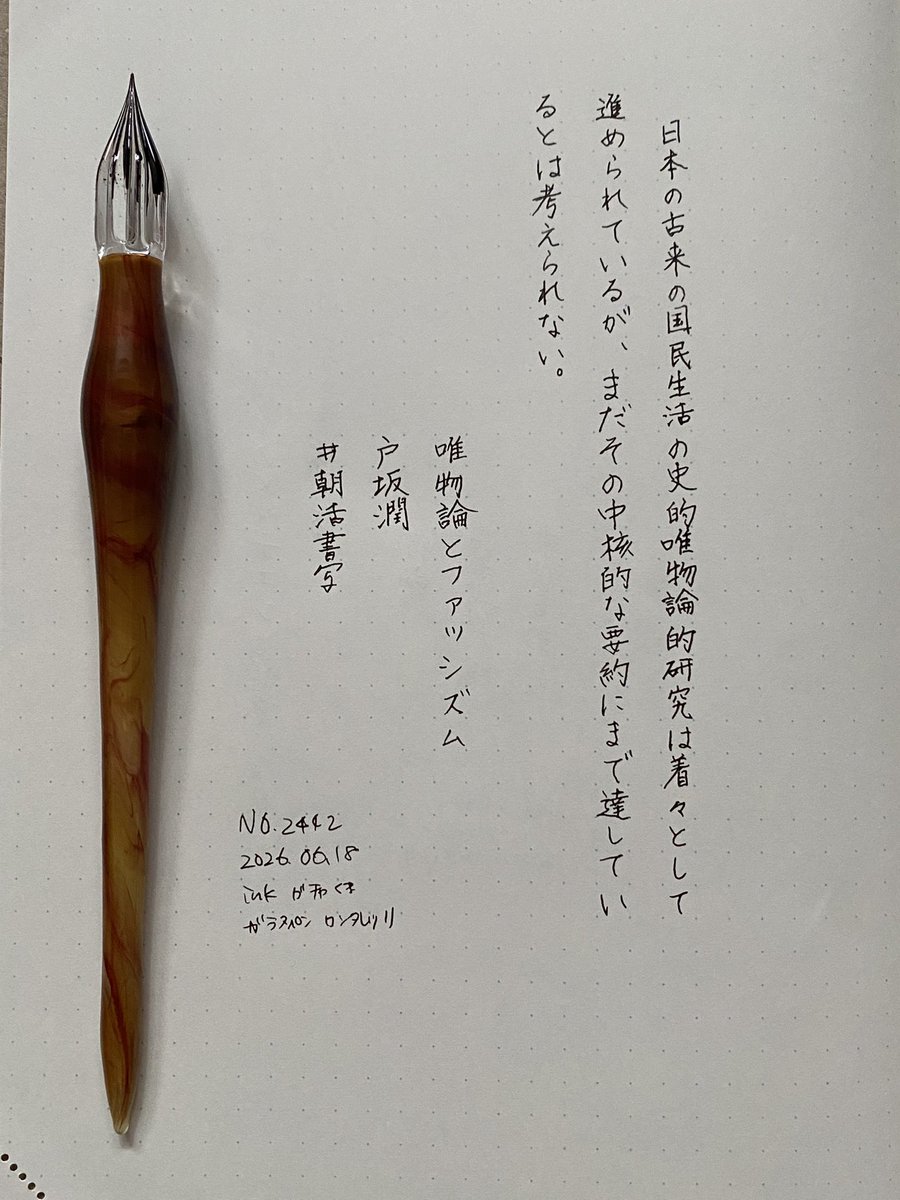 日本の古来の国民生活の史的唯物論的研究は着々として
進められているが、まだその中核的な要約にまで達してい
るとは考えられない。
唯物論とファッシズム
戸坂潤
#朝活書写
No.2442
2026.06.18
ink
ガラスペン ロンタレッリ